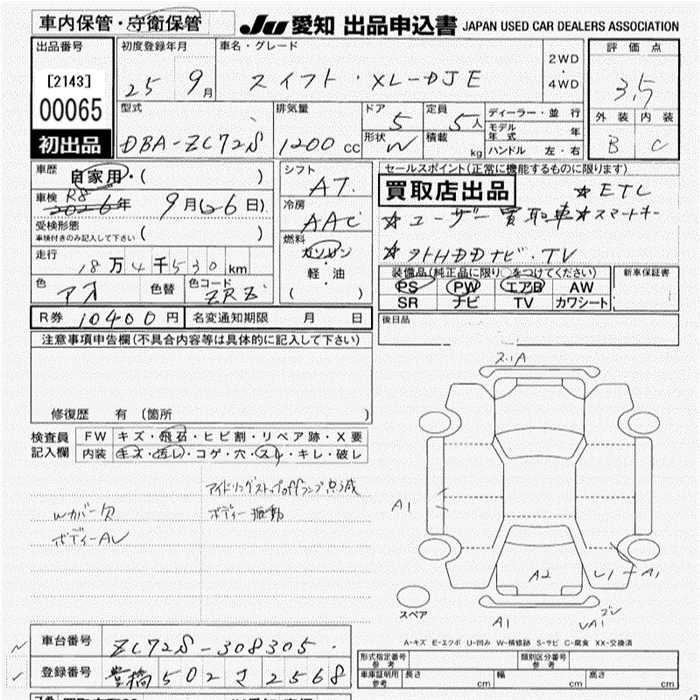 車内保管・守衛保管
JU 愛知 出品申込書 JAPAN USED CAR DEALERS ASSOCIATION
出品番号 [2143] 00065 初出品
初度登録年月 25 9月
車名・グレード スイフト・XL-DJE
2WD・4WD
評価点 3.5
外装 B 内装 C
型式 DBA-ZC72S
排気量 1200 cc
ドア 5 形状 W
定員 5人 積載 kg
ディーラー・並行
モデル年式 年
ハンドル 左・右
車歴 自家用・( )
車検 R8 2026年 9月(26日)
受検形態 車検付きのみ記入して下さい ( )
走行 18万4千530km
色 アオ 色替 色コード ZRZ
シフト AT
冷房 AAC
燃料 ガソリン 軽・油 ( )
セールスポイント(正常に機能するものに限ります)
買取店出品 ☆ETC
☆ユーザー買取車☆スマートキー
☆ソトHDDナビ・TV
装備品(純正品に限り○をつけてください)
PS PW エアB AW
SR ナビ TV カワシート
新車保証書
後日品
R券 10400円 名変通知期限 月 日
注意事項申告欄(不具合内容等は具体的に記入して下さい)
修復歴 有 (箇所 )
検査員記入欄
FW キズ・飛石・ヒビ割・リペア跡・X要
内装 キズ・汚レ・コゲ・穴・スレ・キレ・破レ
アイドリングストップoffランプ点滅
Wカバー欠 ボディー振動
ボディーAU
スリA
A1
A2
U1 A1
A1
UA1
スペア
A-キズ E-エクボ U-凹み W-補修跡 S-サビ C-腐食 XX-交換済
車台番号 ZC72S-308305
登録番号 豊橋 502 さ 2568
形式指定番号 参考 類別区分番号 参考
車庫証明用 参考 長さ cm 幅 cm 高さ cm